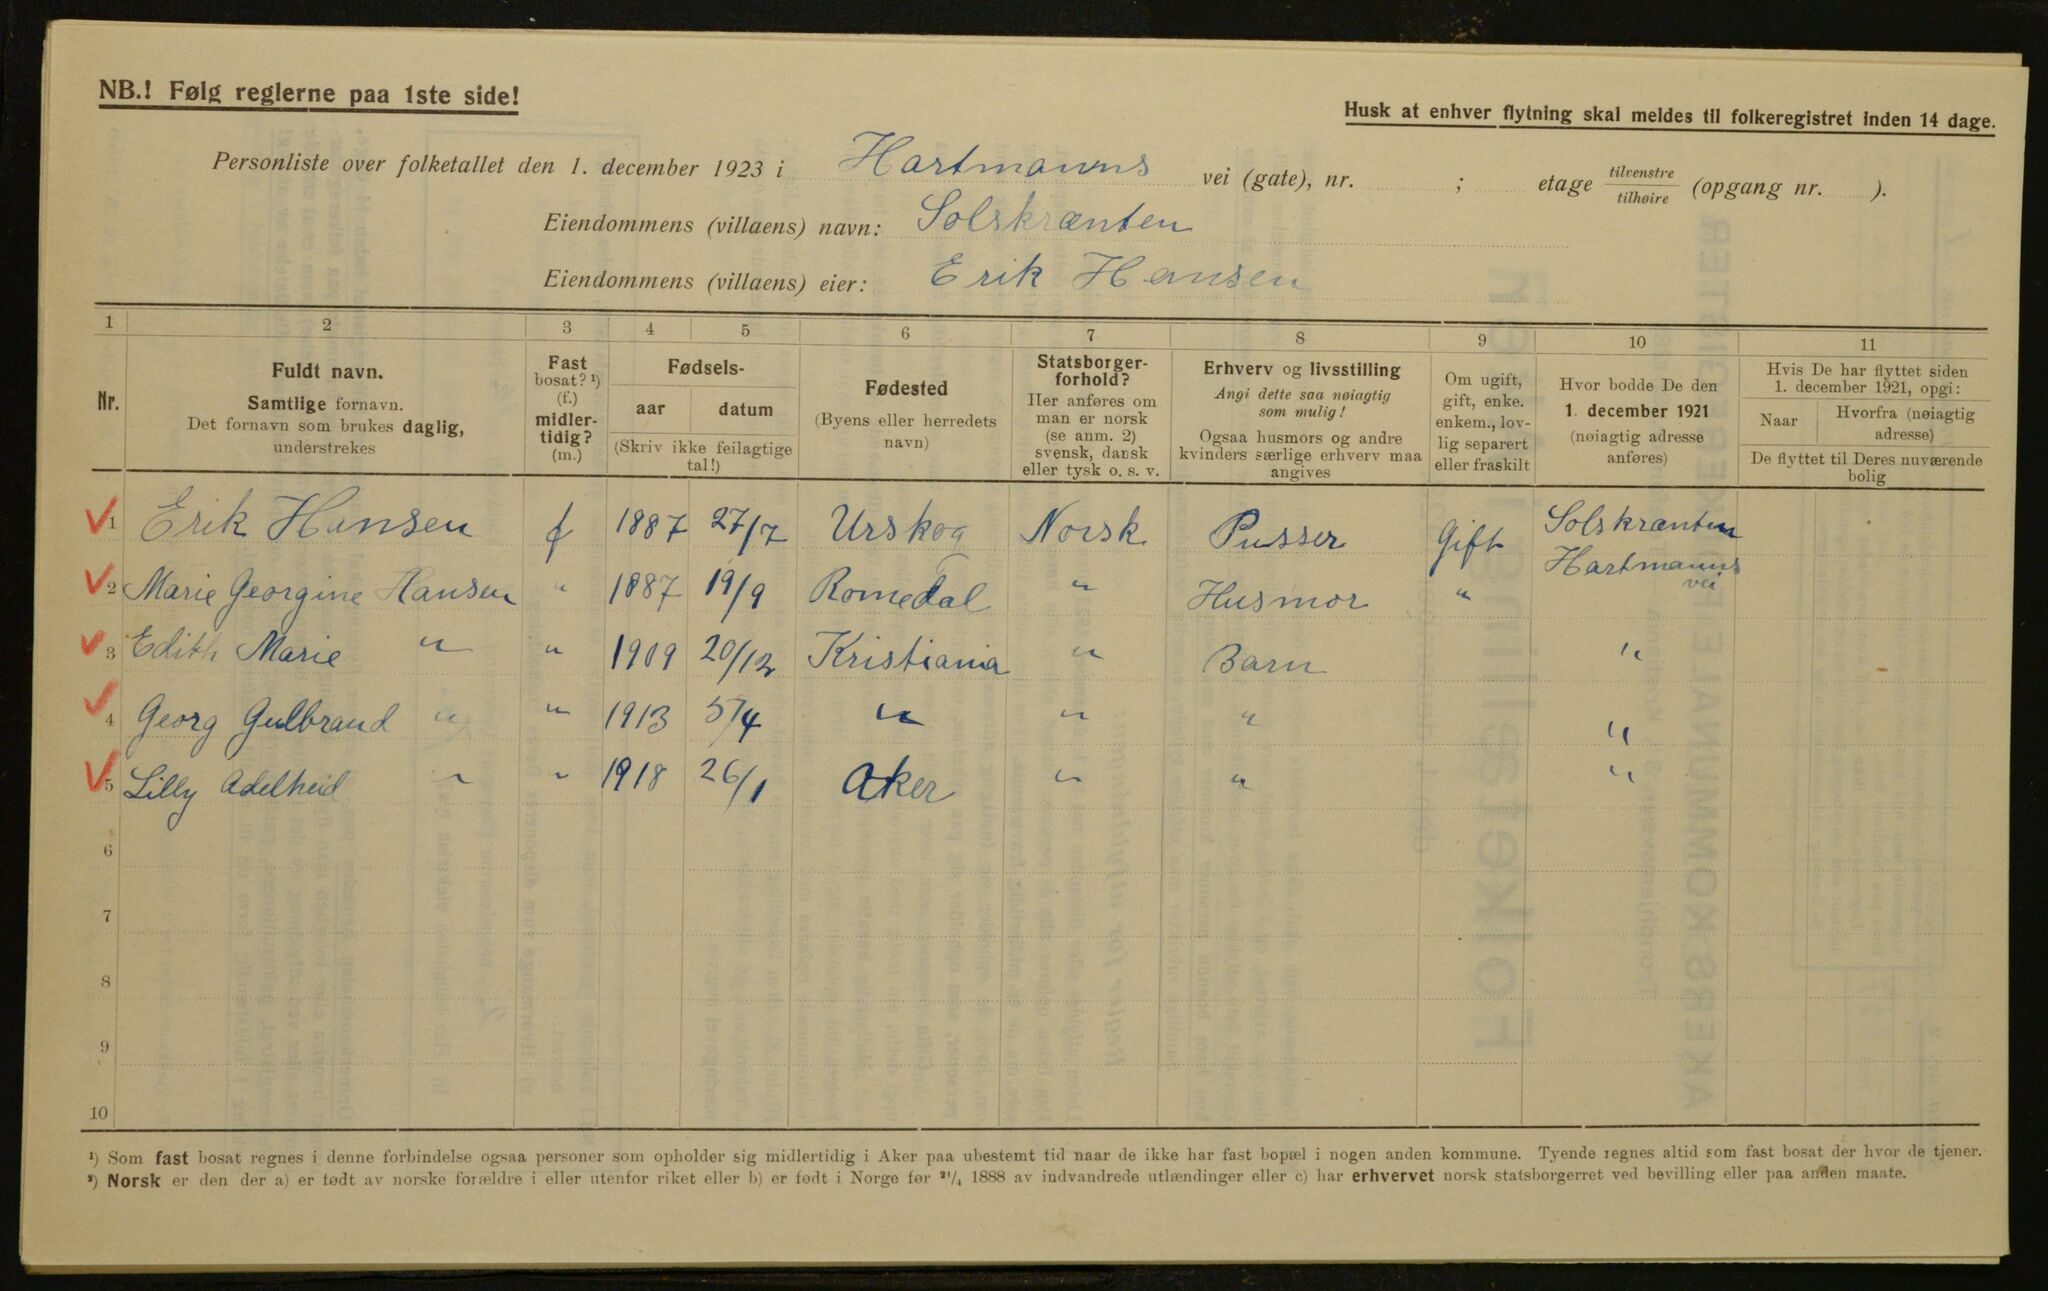 NB.! Følg reglerne paa 1ste side!
Husk at enhver flytning skal meldes til folkeregistret inden 14 dage.
Personliste over folketallet den 1. december 1923 i Hartmanns vei (gate), nr. ; etage tilvenstre / tilhøire (opgang nr. ).
Eiendommens (villaens) navn: Solskrænten
Eiendommens (villaens) eier: Erik Hansen
1 2 3 4 5 6 7 8 9 10 11
Nr.
Fuldt navn.
Samtlige fornavn.
Det fornavn som brukes daglig,
understrekes
Fast
bosat? ¹)
(f.)
midler-
tidig?
(m.)
Fødsels-
aar datum
(Skriv ikke feilagtige
tal!)
Fødested
(Byens eller herredets
navn)
Statsborger-
forhold?
Her anføres om
man er norsk
(se anm. 2)
svensk, dansk
eller tysk o. s. v.
Erhverv og livsstilling
Angi dette saa nøiagtig
som mulig!
Ogsaa husmors og andre
kvinders særlige erhverv maa
angives
Om ugift,
gift, enke.
enkem., lov-
lig separert
eller fraskilt
Hvor bodde De den
1. december 1921
(nøiagtig adresse
anføres)
Hvis De har flyttet siden
1. december 1921, opgi:
Naar
Hvorfra (nøiagtig
adresse)
De flyttet til Deres nuværende
bolig
1 Erik Hansen f 1887 27/7 Urskog Norsk Pusser Gift Solskrænten
Hartmanns
vei
2 Marie Georgine Hansen " 1887 19/9 Romedal " Husmor "
3 Edith Marie " " 1909 20/12 Kristiania " Barn "
4 Georg Gulbrand " " 1913 5/4 " " " "
5 Lilly Adelheid " " 1918 26/1 Aker " " "
6
7
8
9
10
¹) Som fast bosat regnes i denne forbindelse ogsaa personer som opholder sig midlertidig i Aker paa ubestemt tid naar de ikke har fast bopæl i nogen anden kommune. Tyende regnes altid som fast bosat der hvor de tjener.
²) Norsk er den der a) er født av norske forældre i eller utenfor riket eller b) er født i Norge før ²¹/₄ 1888 av indvandrede utlændinger eller c) har erhvervet norsk statsborgerret ved bevilling eller paa anden maate.